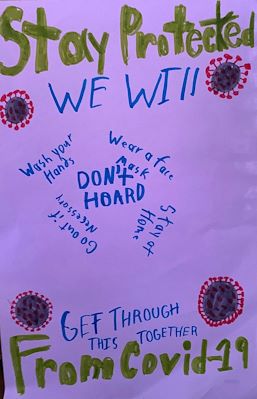 Stay Protected
WE WIll
Wash your
Hands
Wear a face
mask
DON'T
HOARD
Go out if
Necessary
Stay at
Home
GET THROUGH
THIS TOGETHER
From Covid-19